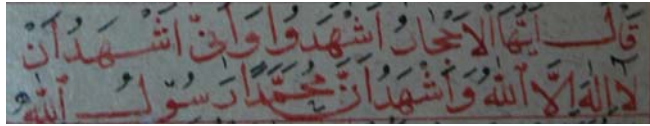 قَالَ اَيَّتُهَا الْاَحْجَارُ اَشْهَدُوا وَاَنِّي اَشْهَدُ اَنْ
لَا اِلٰهَ اِلَّا اللّٰهُ وَاَشْهَدُ اَنَّ مُحَمَّدًا رَسُوْلُ اللّٰهِ